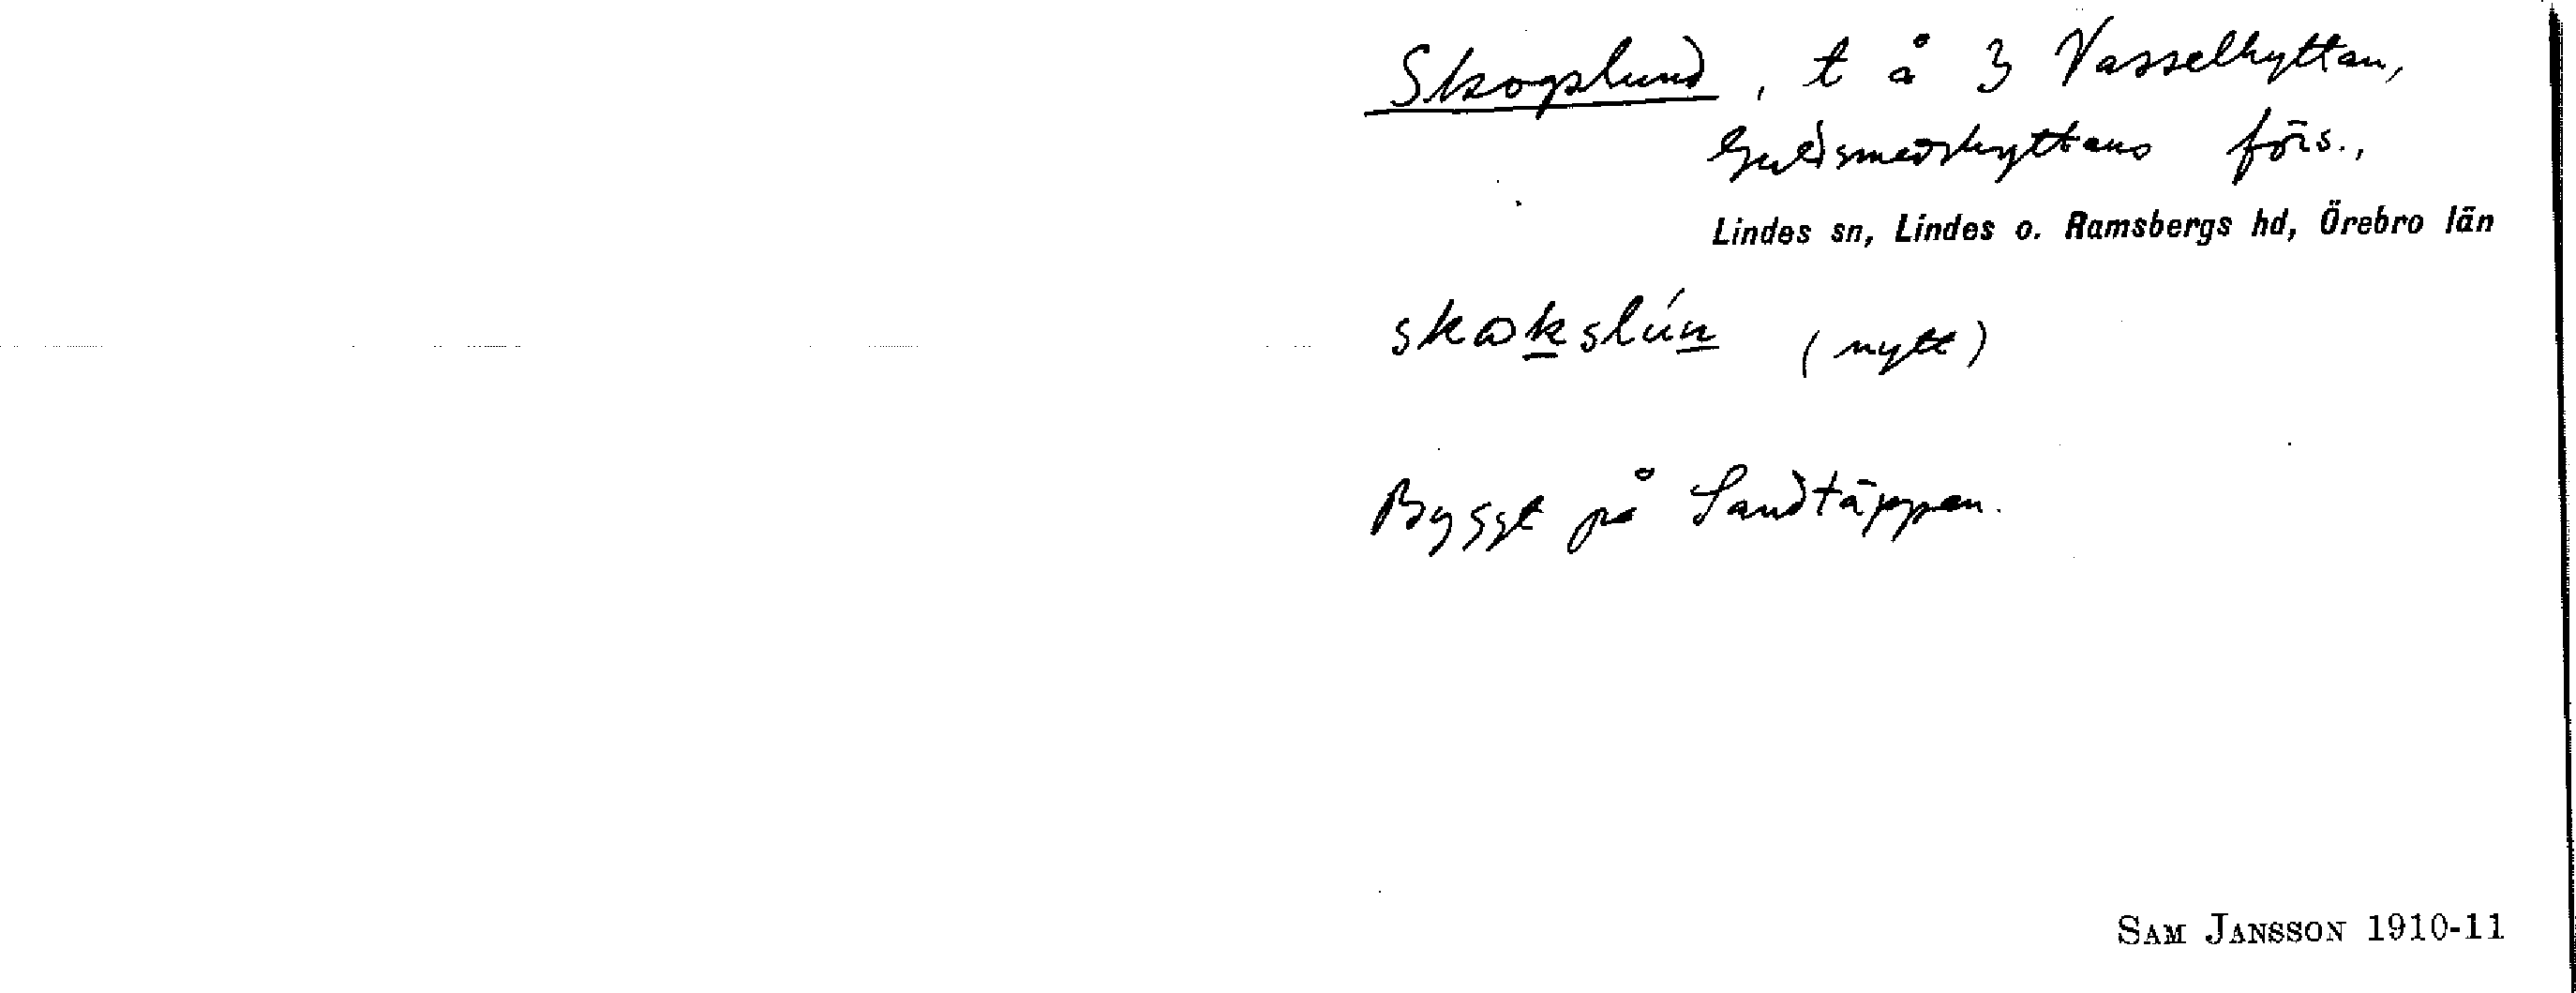 Skogslund, t å 3 Vasselhyttan,
Guldsmedshyttans förs.,
Lindes sn, Lindes o. Ramsbergs hd, Örebro län
skɷkslún (nytt)
Byggt på Sandtäppan.
SAM JANSSON 1910-11